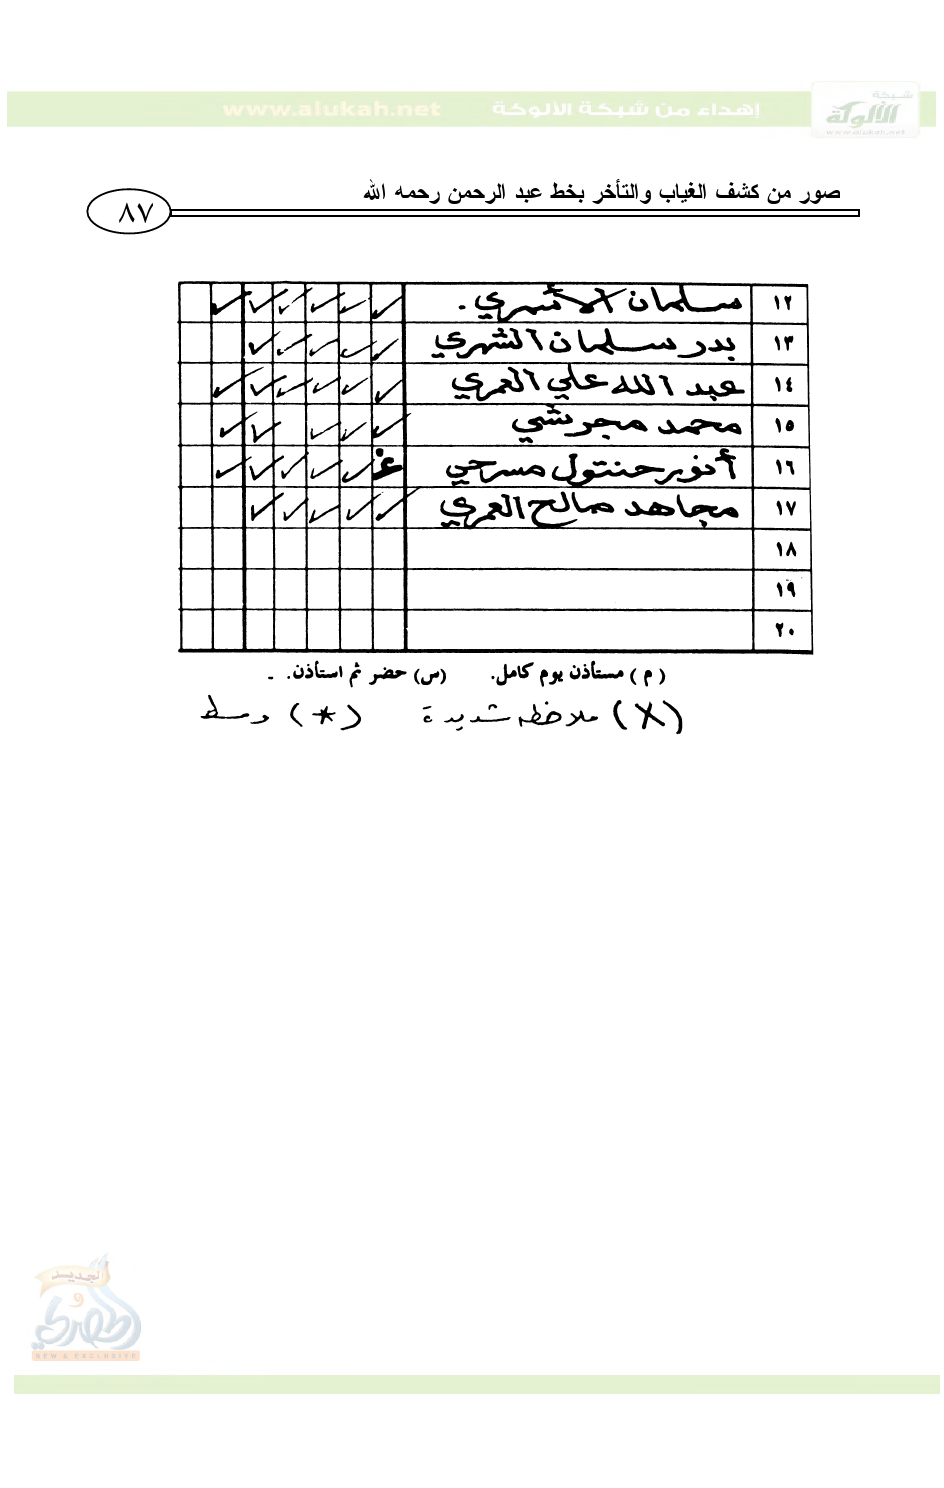 إهداء من شبكة الألوكة www.alukah.net
شبكة
الألوكة
www.alukah.net
صور من كشف الغياب والتأخر بخط عبد الرحمن رحمه الله
٨٧
١٢ سلمان الأسمري . ✓ ✓ ✓ ✓ ✓ ✓
١٣ بدر سلمان الشهري ✓ ✓ ✓ ✓ ✓
١٤ عبد الله علي العمري ✓ ✓ ✓ ✓ ✓ ✓
١٥ محمد مجرشي ✓ ✓ ✓ ✓ ✓
١٦ أنور حنتول مسرحي غ ✓ ✓ ✓ ✓ ✓
١٧ مجاهد صالح العمري ✓ ✓ ✓ ✓ ✓
١٨
١٩
٢٠
( م ) مستأذن يوم كامل. (س) حضر ثم استأذن. -
(X) ملاحظه شديدة (*) وسط
الجديد
و
الحصري
NEW & EXCLUSIVE